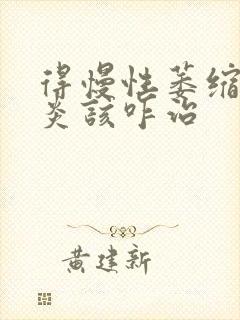 得慢性萎缩
炎该咋治
黄建新